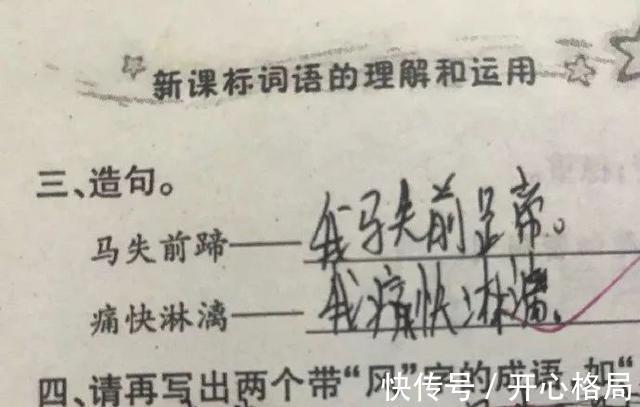 新课标词语的理解和运用
三、造句。
马失前蹄——我马失前蹄。
痛快淋漓——我痛快淋漓。
四、请再写出两个带“风”字的成语,如“
快传号/开心格局